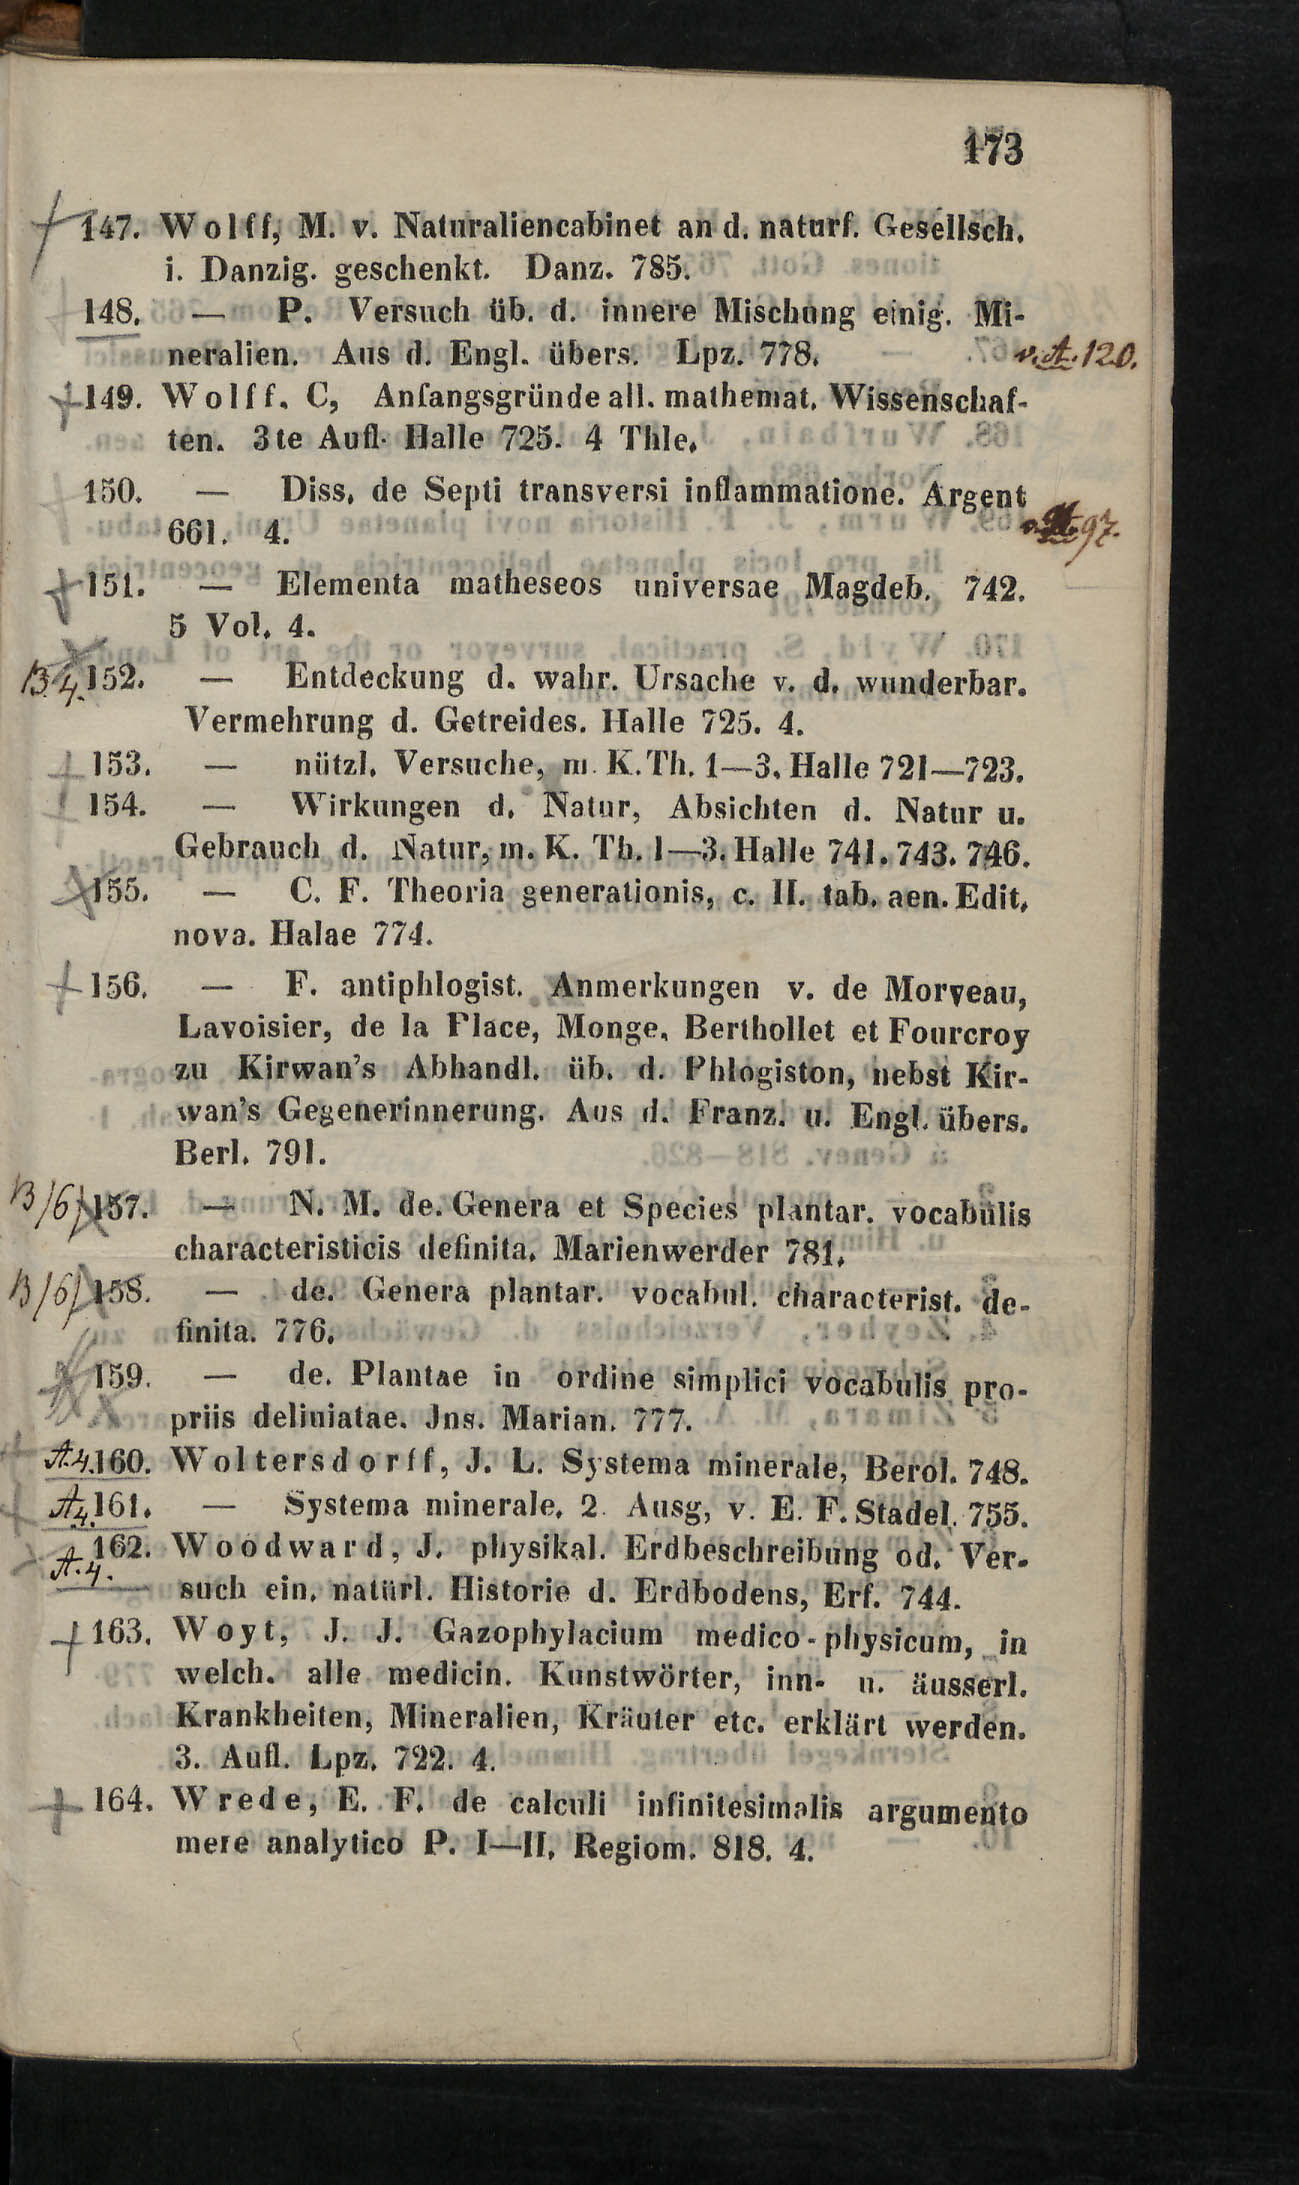 173
147. Wolff, M. v. Naturaliencabinet an d. naturf. Gesellsch.
i. Danzig. geschenkt. Danz. 785.
148. — P. Versuch üb. d. innere Mischung einig. Mi-
neralien. Aus d. Engl. übers. Lpz. 778. v. A. 120.
149. Wolff. C, Anfangsgründe all. mathemat. Wissenschaf-
ten. 3te Aufl. Halle 725. 4 Thle.
150. — Diss. de Septi transversi inflammatione. Argent
661. 4. 97.
151. — Elementa matheseos universae Magdeb. 742.
5 Vol. 4.
B 4. 152. — Entdeckung d. wahr. Ursache v. d. wunderbar.
Vermehrung d. Getreides. Halle 725. 4.
153. — nützl. Versuche, m. K. Th. 1—3. Halle 721—723.
154. — Wirkungen d. Natur, Absichten d. Natur u.
Gebrauch d. Natur, m. K. Th. 1—3. Halle 741. 743. 746.
155. — C. F. Theoria generationis, c. II. tab. aen. Edit.
nova. Halae 774.
156. — F. antiphlogist. Anmerkungen v. de Morveau,
Lavoisier, de la Place, Monge, Berthollet et Fourcroy
zu Kirwan's Abhandl. üb. d. Phlogiston, nebst Kir-
wan's Gegenerinnerung. Aus d. Franz. u. Engl. übers.
Berl. 791.
B/6/ 157. — N. M. de. Genera et Species plantar. vocabulis
characteristicis definita. Marienwerder 781.
B/6/ 158. — de. Genera plantar. vocabul. characterist. de-
finita. 776.
159. — de. Plantae in ordine simplici vocabulis pro-
priis deliniatae. Jns. Marian. 777.
A.4. 160. Woltersdorff, J. L. Systema minerale, Berol. 748.
A.4. 161. — Systema minerale. 2. Ausg, v. E. F. Stadel. 755.
A.4. 162. Woodward, J. physikal. Erdbeschreibung od. Ver-
such ein. natürl. Historie d. Erdbodens, Erf. 744.
163. Woyt, J. J. Gazophylacium medico-physicum, in
welch. alle medicin. Kunstwörter, inn- u. äusserl.
Krankheiten, Mineralien, Kräuter etc. erklärt werden.
3. Aufl. Lpz. 722. 4.
164. Wrede, E. F. de calculi infinitesimalis argumento
mere analytico P. I—II. Regiom. 818. 4.